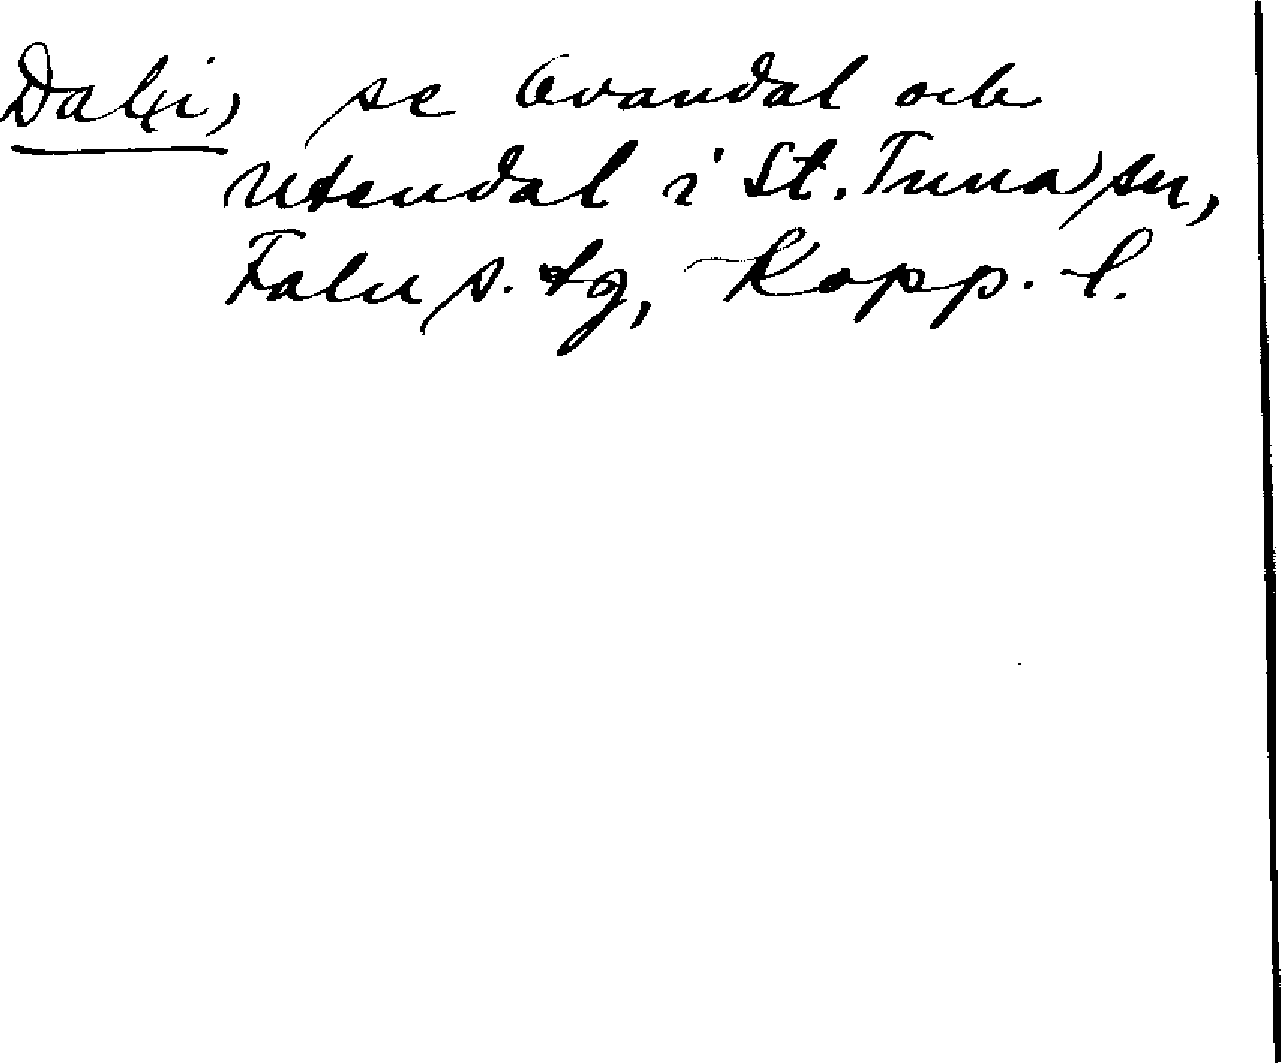 Dali, se Ovandal och
Utendal i St. Tuna sn,
Falu s. tg, Kopp. l.